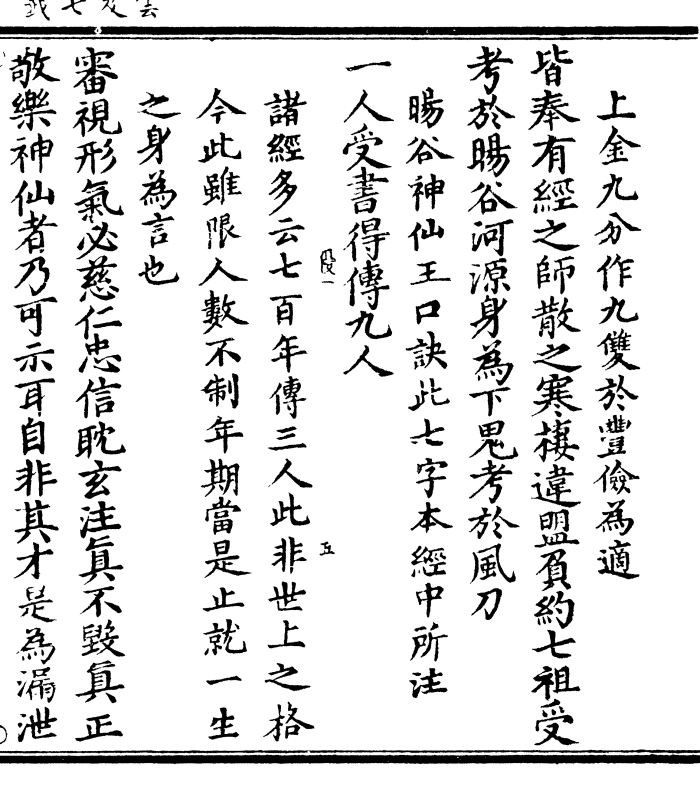 上金九分作九雙於豐儉為適
皆奉有經之師散之寒棲違盟負約七祖受
考於暘谷河源身為下鬼考於風刀
暘谷神仙王口訣此七字本經中所注
一人受書得傳九人
諸經多云七百年傳三人此非世上之格
五
今此雖限人數不制年期當是止就一生
之身為言也
審視形氣必慈仁忠信耽玄注真不毀真正
敬樂神仙者乃可示耳自非其才是為漏泄